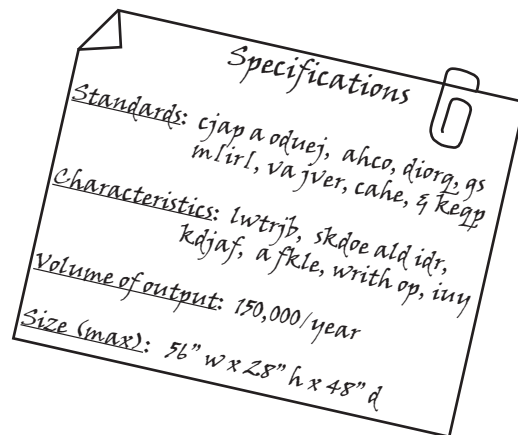 Specifications
Standards: cjap a oduej, ahco, diorq, gs
m[ir[, va jver, cahe, & keqp
Characteristics: lwtrjb, skdoe ald idr,
kdjaf, a fkle, writh op, iuy
Volume of output: 150,000/year
Size (max): 56" w x 28" h x 48" d